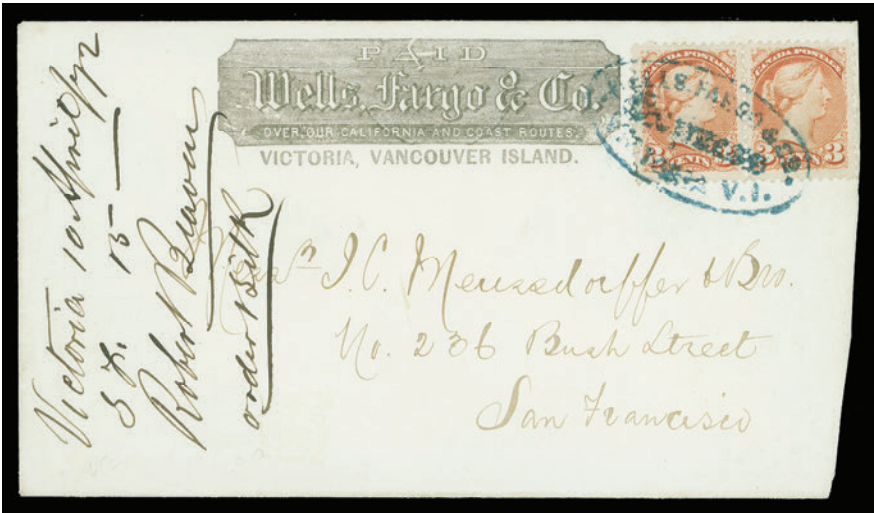 PAID
Wells, Fargo & Co.
OVER OUR CALIFORNIA AND COAST ROUTES.
VICTORIA, VANCOUVER ISLAND.
CANADA POSTAGE
CANADA POSTAGE
3 CENTS 3
3 CENTS 3
WELLS, FARGO & CO.
EXPRESS
V.I.
Victoria 10 April /72
Robert Beaven
order
J. C. Meussdorffer & Bro.
No. 236 Bush Street
San Francisco